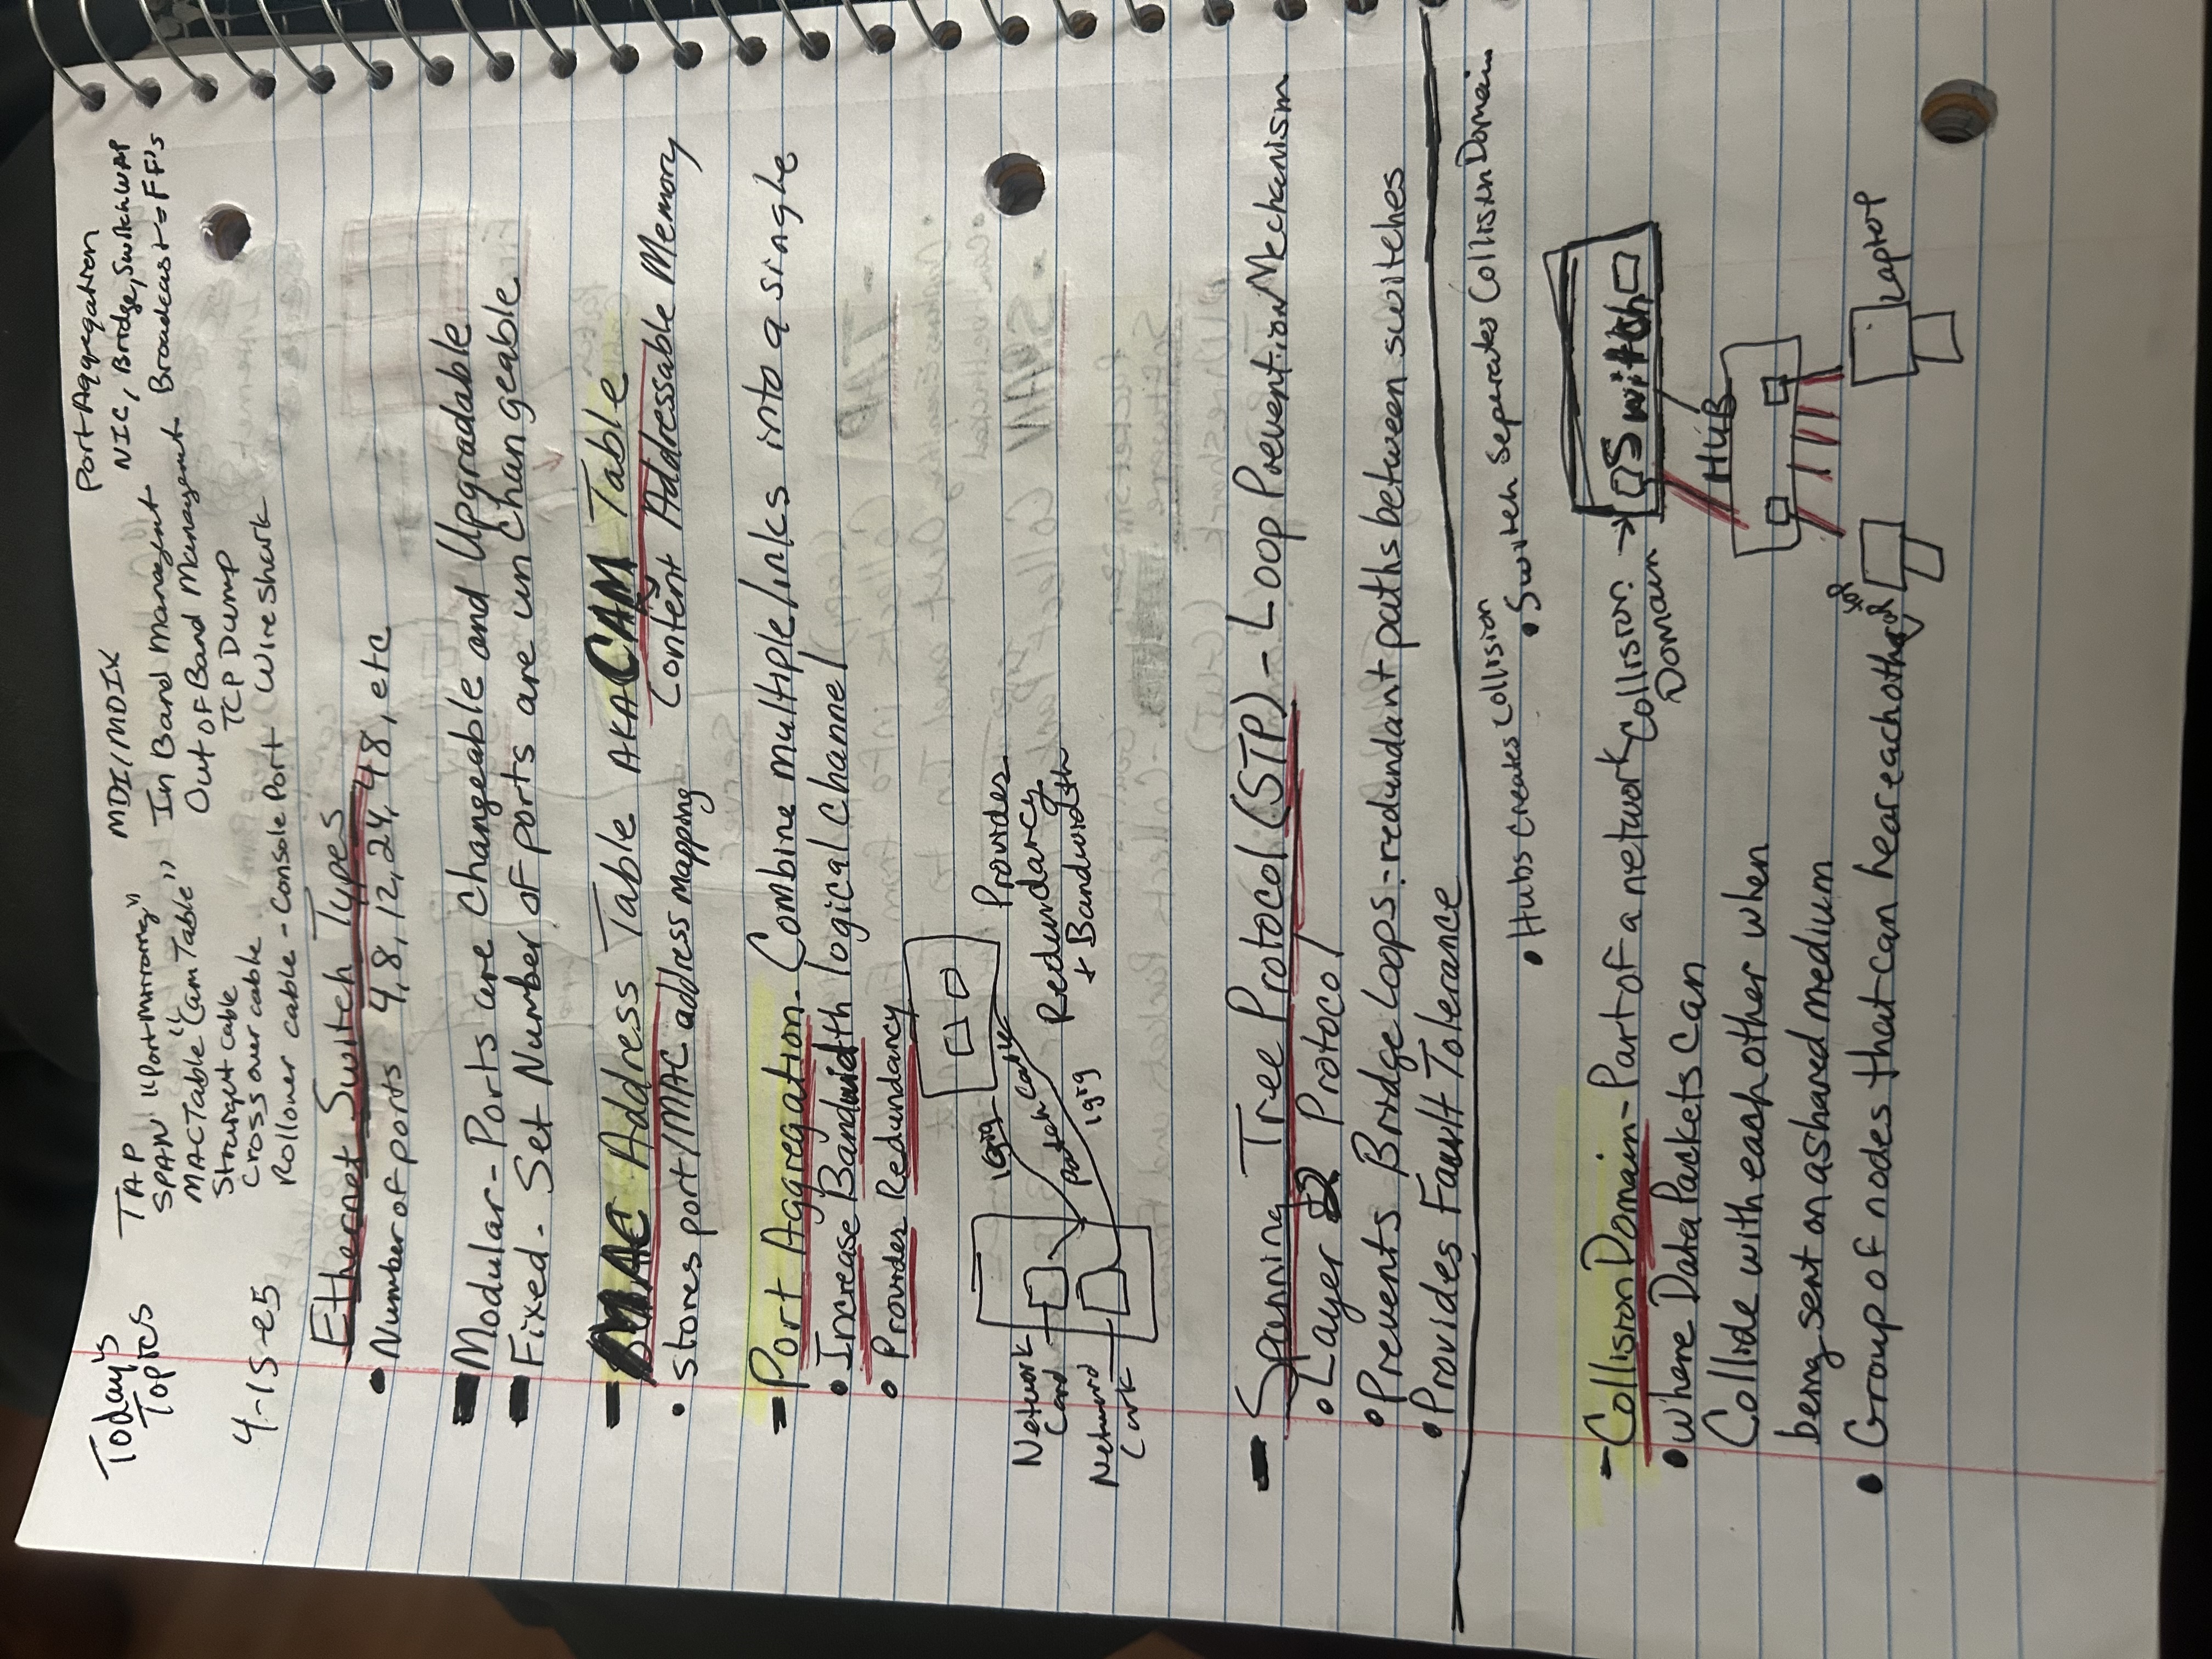 Today's
Topics
4-15-25
TAP
SPAN "Port Mirroring"
MAC Table "Cam Table"
Straight cable
Cross over cable
Rollover cable - Console Port
MDI/MDIX
In Band Managent
Out of Band Management
TCP Dump
Wireshark
Port Aggregation
NIC, Bridge, Switch WAP
Broadcast = FF's
Ethernet Switch Types
• Number of ports 4, 8, 12, 24, 48, etc
- Modular - Ports are Changeable and Upgradable
- Fixed - Set Number of ports are unchangeable
- MAC Address Table AKA CAM Table
• stores port/MAC address mapping Content Addressable Memory
- Port Aggregation - Combine multiple links into a single
• Increase Bandwidth logical Channel
• Provides Redundancy
Network
Card
Network
1Gig
Patch Cable
1gig
Provides
Redundancy
+ Bandwidth
- Spanning Tree Protocol (STP) - Loop Prevention Mechanism
• Layer 2 Protocol
• Prevents Bridge Loops - redundant paths between switches
• Provides Fault Tolerance
• Hubs Creates Collision • Switch Seperates Collision Domain
- Collision Domain - Part of a network
• where Data Packets Can
Collide with each other when
being sent on a shared medium
• Group of nodes that can hear each other
Collision
Domain
Switch
HUB
Laptop
Laptop